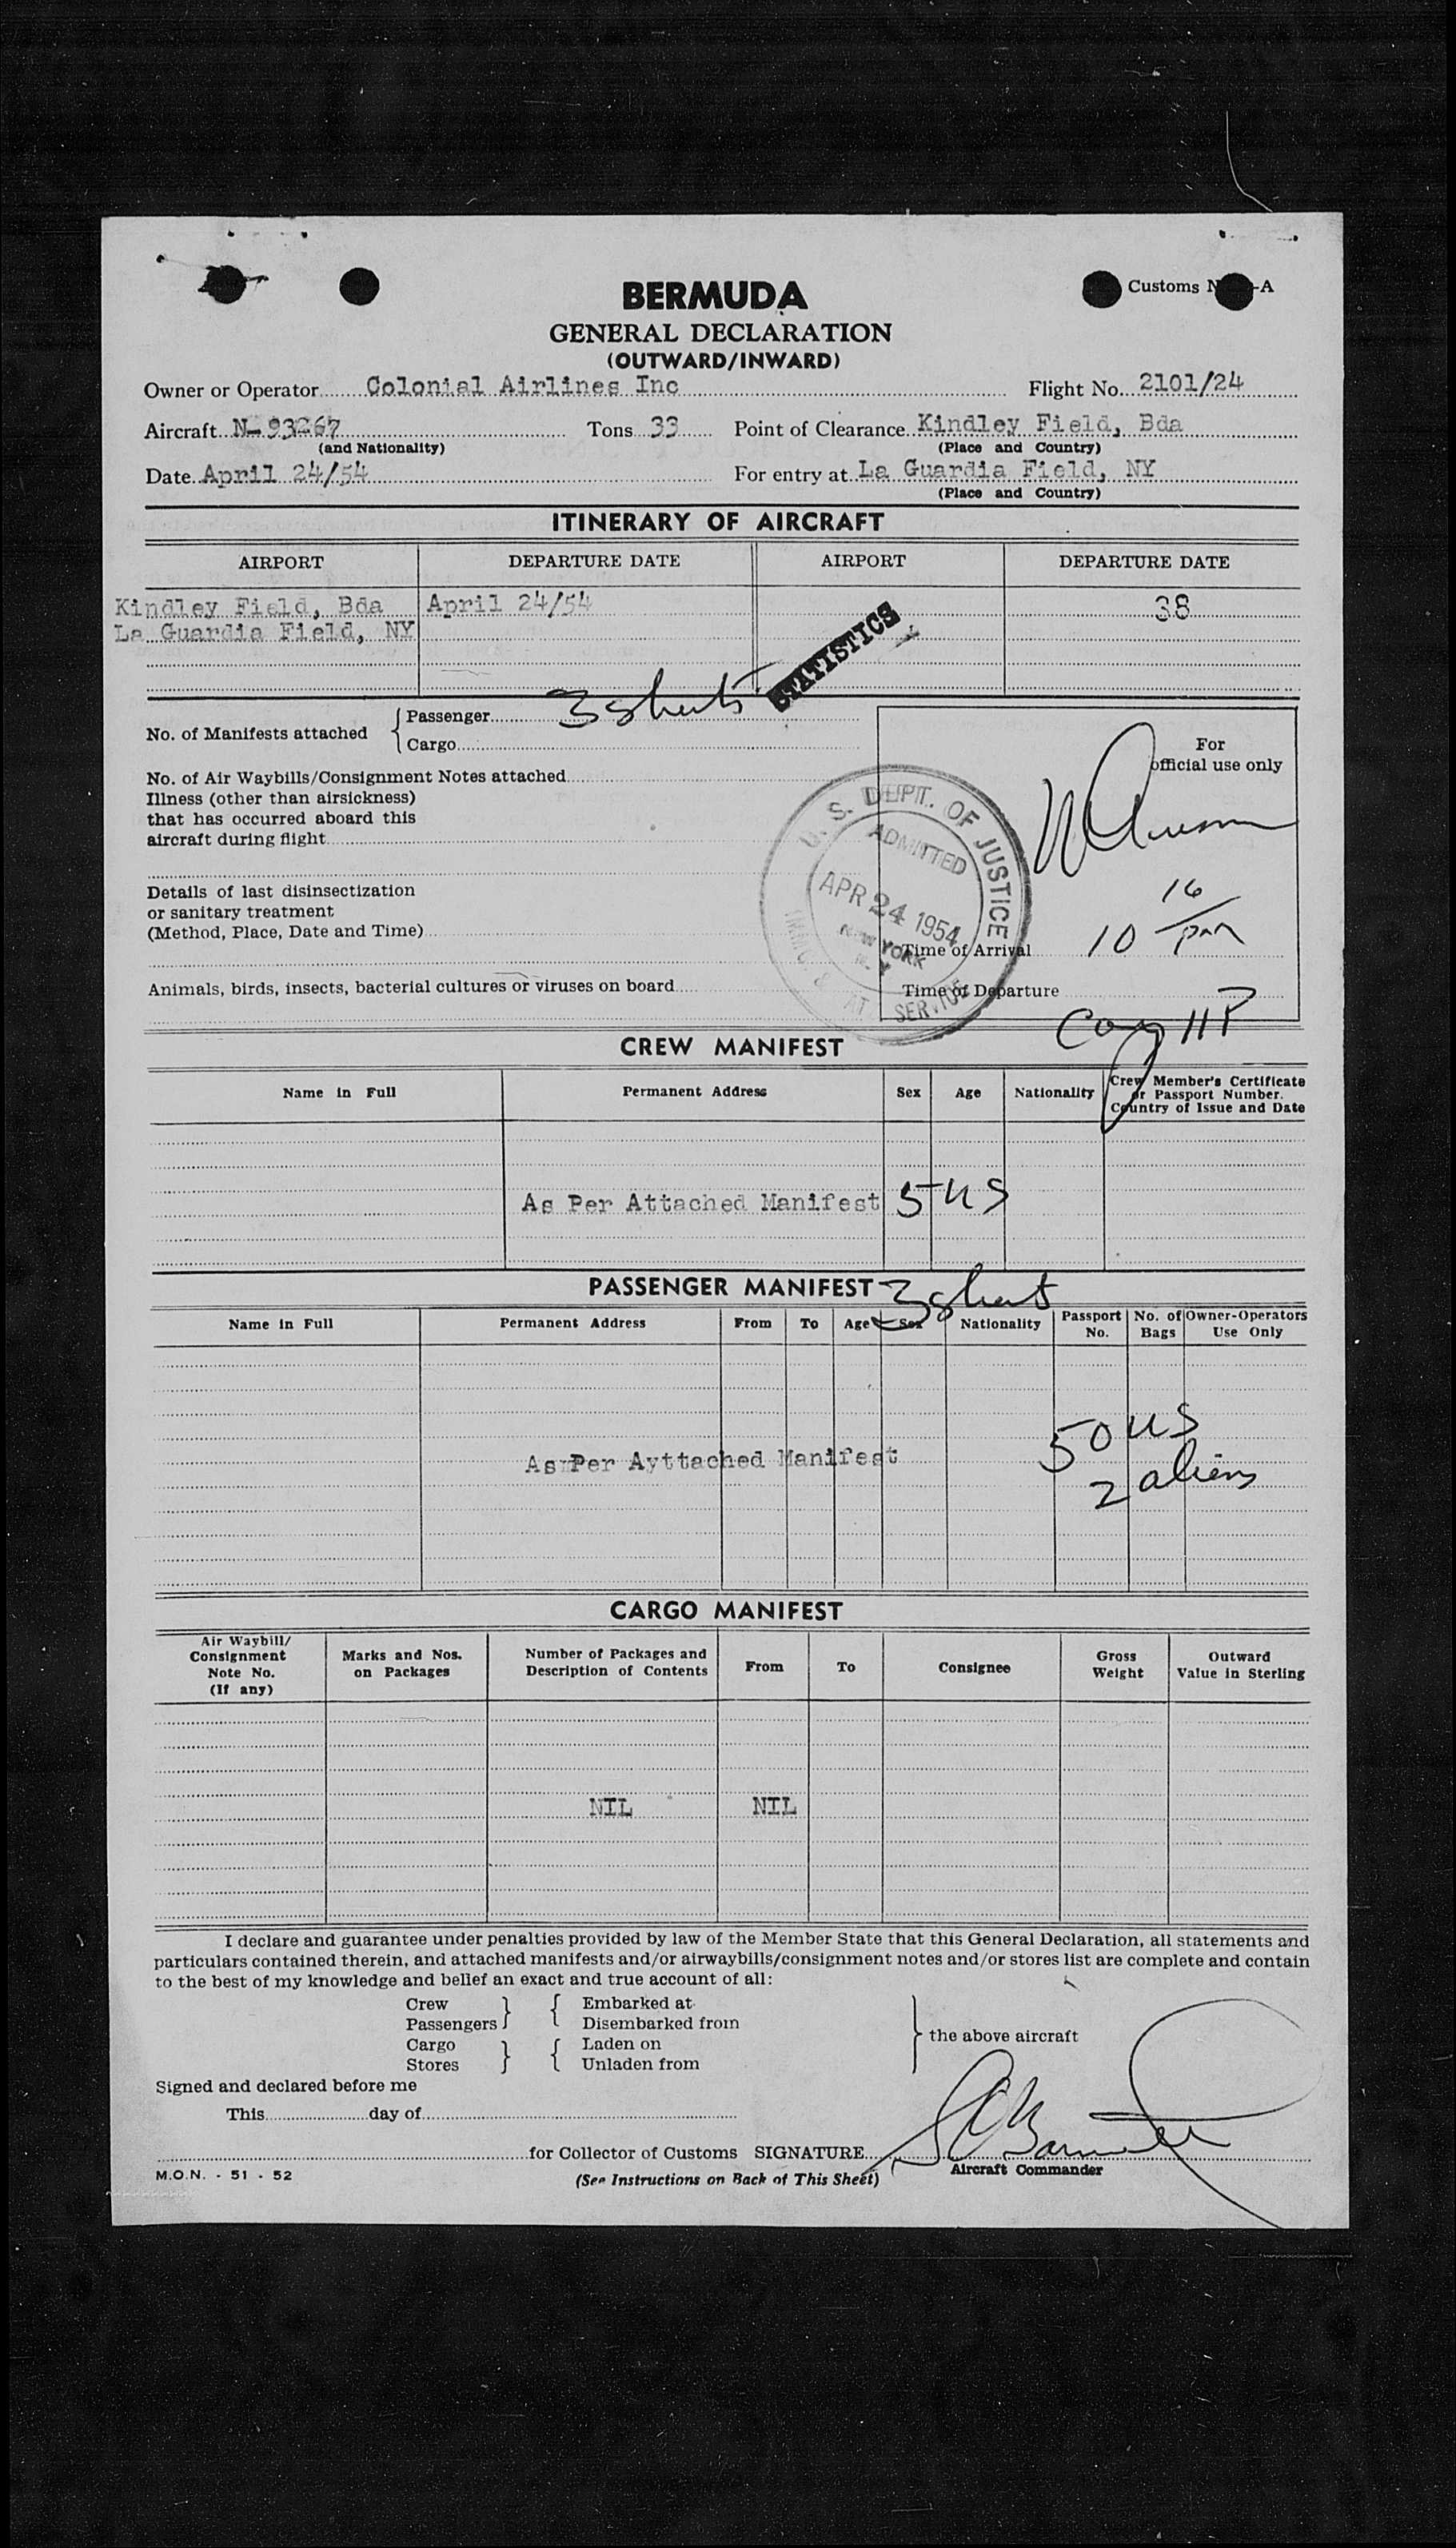 Customs N -A
BERMUDA
GENERAL DECLARATION
(OUTWARD/INWARD)
Owner or Operator Colonial Airlines Inc Flight No. 2101/24
Aircraft N-93267 Tons 33 Point of Clearance Kindley Field, Bda
(and Nationality) (Place and Country)
Date April 24/54 For entry at La Guardia Field, NY
(Place and Country)
ITINERARY OF AIRCRAFT
AIRPORT DEPARTURE DATE AIRPORT DEPARTURE DATE
Kindley Field, Bda April 24/54 38
La Guardia Field, NY
STATISTICS
No. of Manifests attached { Passenger 3 sheets
Cargo
For
official use only
No. of Air Waybills/Consignment Notes attached
Illness (other than airsickness)
that has occurred aboard this
aircraft during flight
U. S. DEPT. OF JUSTICE
ADMITTED
APR 24 1954
NEW YORK
N. Y.
SERVICE
Details of last disinsectization
or sanitary treatment
(Method, Place, Date and Time)
Time of Arrival 10 16/pm
Animals, birds, insects, bacterial cultures or viruses on board
Time of Departure
11 P
CREW MANIFEST
Name in Full Permanent Address Sex Age Nationality Crew Member's Certificate
or Passport Number.
Country of Issue and Date
As Per Attached Manifest 5 US
PASSENGER MANIFEST 3 sheets
Name in Full Permanent Address From To Age Sex Nationality Passport No. No. of Bags Owner-Operators Use Only
50 US
As Per Ayttached Manifest
2 aliens
CARGO MANIFEST
Air Waybill/ Consignment Note No. (If any) Marks and Nos. on Packages Number of Packages and Description of Contents From To Consignee Gross Weight Outward Value in Sterling
NIL NIL
I declare and guarantee under penalties provided by law of the Member State that this General Declaration, all statements and
particulars contained therein, and attached manifests and/or airwaybills/consignment notes and/or stores list are complete and contain
to the best of my knowledge and belief an exact and true account of all:
Crew } { Embarked at
Passengers Disembarked from
Cargo } { Laden on } the above aircraft
Stores Unladen from
Signed and declared before me
This day of
for Collector of Customs SIGNATURE
M.O.N. - 51 - 52 (See Instructions on Back of This Sheet) Aircraft Commander